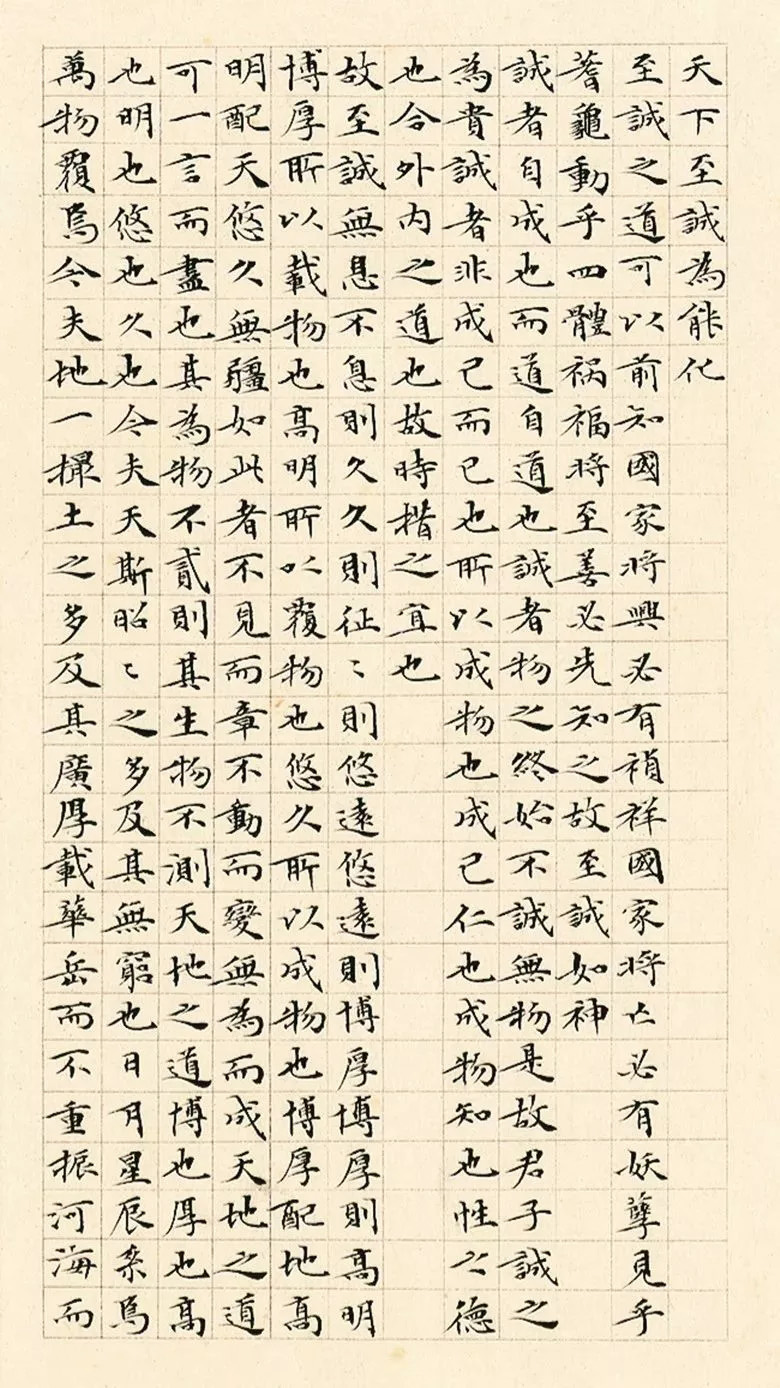 天下至誠為能化
至誠之道可以前知國家将興必有禎祥國家将亡必有妖孽見乎
蓍龜動乎四體祸福将至善必先知之故至誠如神
誠者自成也而道自道也誠者物之終始不誠無物是故君子誠之
為貴誠者非成己而已也所以成物也成己仁也成物知也性之德
也合外内之道也故時措之宜也
故至誠無息不息則久久則征〻則悠遠悠遠則博厚博厚則高明
博厚所以載物也高明所以覆物也悠久所以成物也博厚配地高
明配天悠久無疆如此者不見而章不動而變無為而成天地之道
可一言而盡也其為物不貳則其生物不測天地之道博也厚也高
也明也悠也久也今夫天斯昭〻之多及其無窮也日月星辰系焉
萬物覆焉今夫地一撮土之多及其廣厚載華岳而不重振河海而